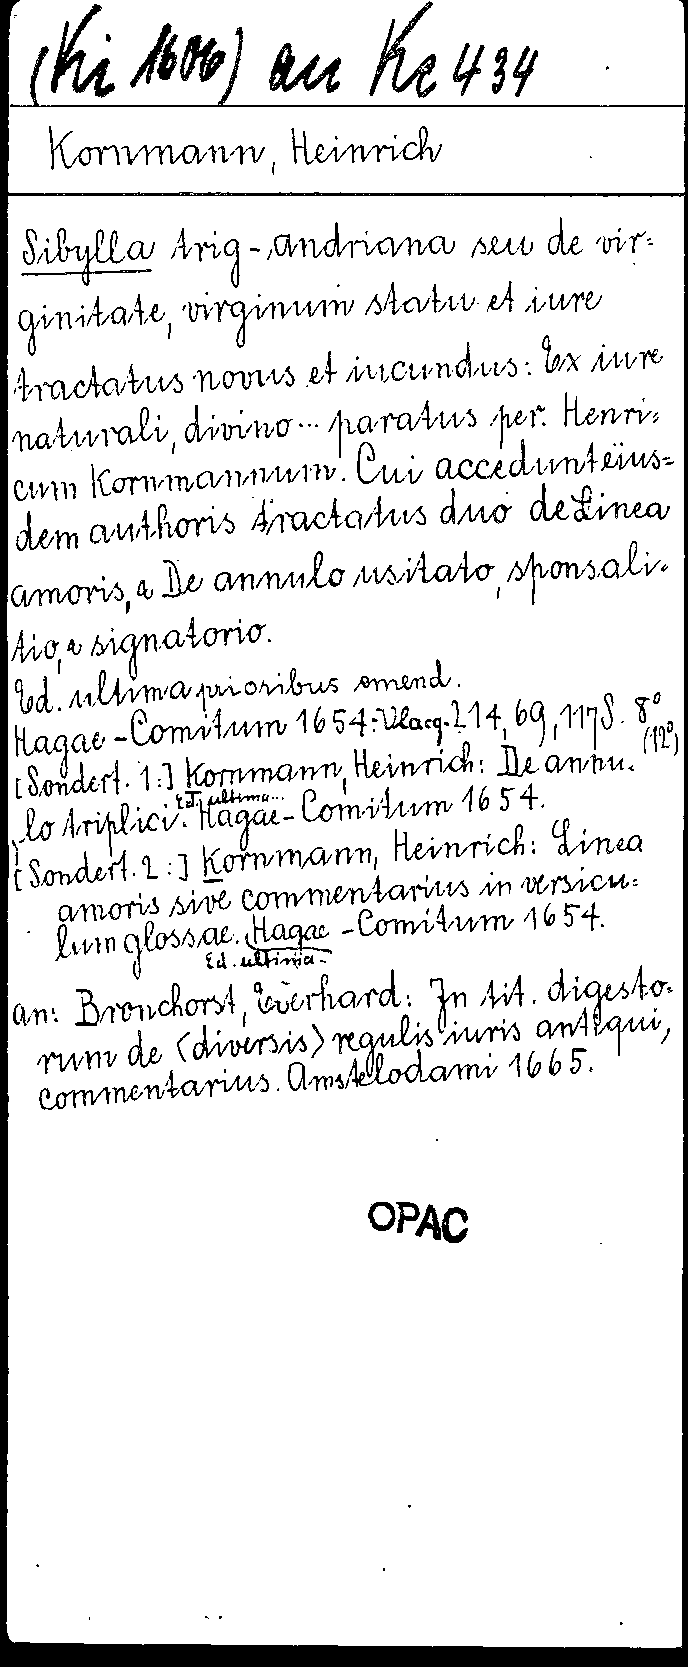 (Ki 1606) an Ke 434
Kornmann, Heinrich
Sibylla trig-Andriana seu de vir=
ginitate, virginum statu et iure
tractatus novus et iucundus: Ex iure
naturali, divino ... paratus per. Henri=
cum Kornmannum. Cui accedunt eius=
dem authoris tractatus duo de Linea
amoris, & De annulo usitato, sponsali=
tio, & signatorio.
Ed. ultima prioribus emend.
Hagae-Comitum 1654: Vlacq. 214, 69, 117 S. 8°
(12°)
[Sondert. 1:] Kornmann, Heinrich: De annu=
lo triplici. Ed. ultima... Hagae-Comitum 1654.
[Sondert. 2:] Kornmann, Heinrich: Linea
amoris sive commentarius in versicu=
lum glossae. Hagae-Comitum 1654.
Ed. ultima.
an: Bronchorst, Everhard: In tit. digesto=
rum de <diversis> regulis iuris antiqui,
commentarius. Amstelodami 1665.
OPAC